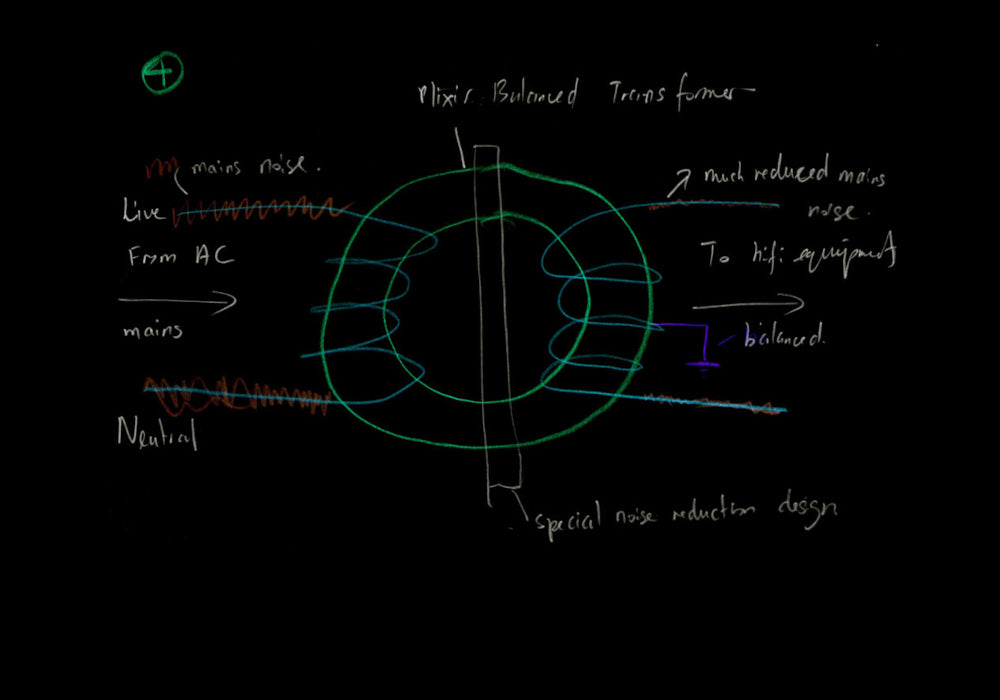 4
Plixir Balanced Transformer
mains noise.
much reduced mains
noise.
Live
From AC
mains
Neutral
To hifi equipment
balanced.
special noise reduction design